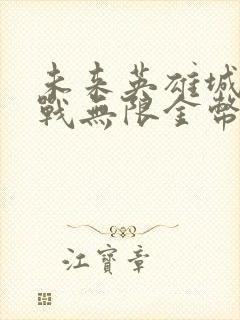 未来英雄城
戰無限金幣
江寶章